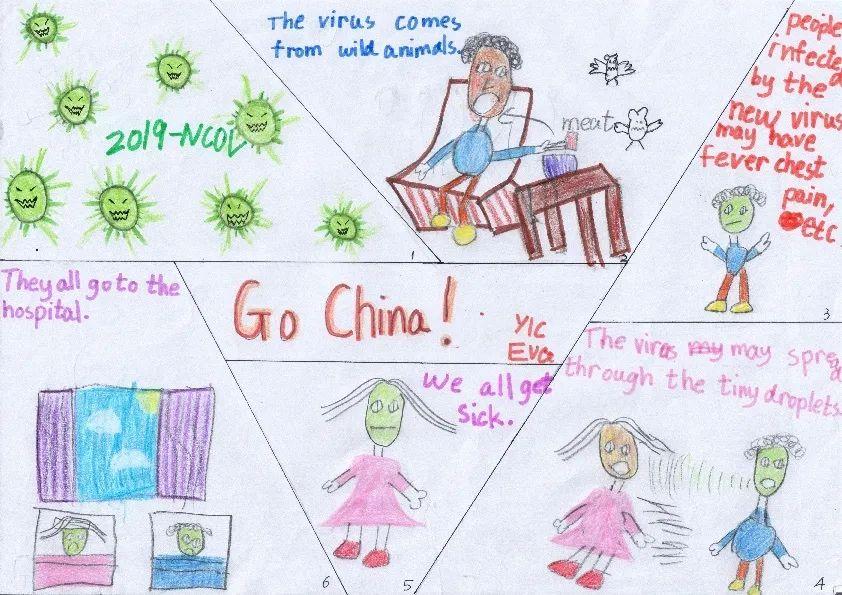 2019-NCOV
1
The virus comes
from wild animals.
meat
2
people
infected
by the
new virus
may have
fever chest
pain,
etc
3
Go China!
YIC
Eva
They all go to the
hospital.
6
We all get
sick.
5
The viras may spread
through the tiny droplets.
4